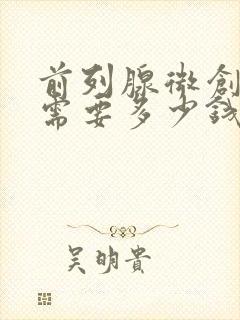 前列腺微創
需要多少錢
吴明貴